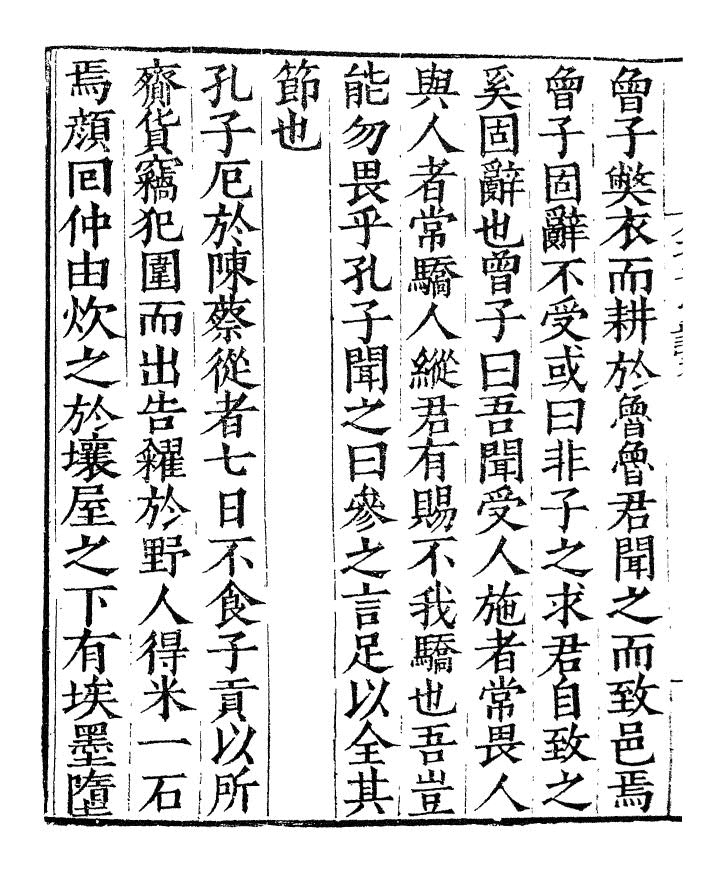 曾子弊衣而耕於魯魯君聞之而致邑焉
曾子固辭不受或曰非子之求君自致之
奚固辭也曾子曰吾聞受人施者常畏人
與人者常驕人縱君有賜不我驕也吾豈
能勿畏乎孔子聞之曰參之言足以全其
節也
孔子厄於陳蔡從者七日不食子貢以所
齎貨竊犯圍而出告糴於野人得米一石
焉顔回仲由炊之於壤屋之下有埃墨墮